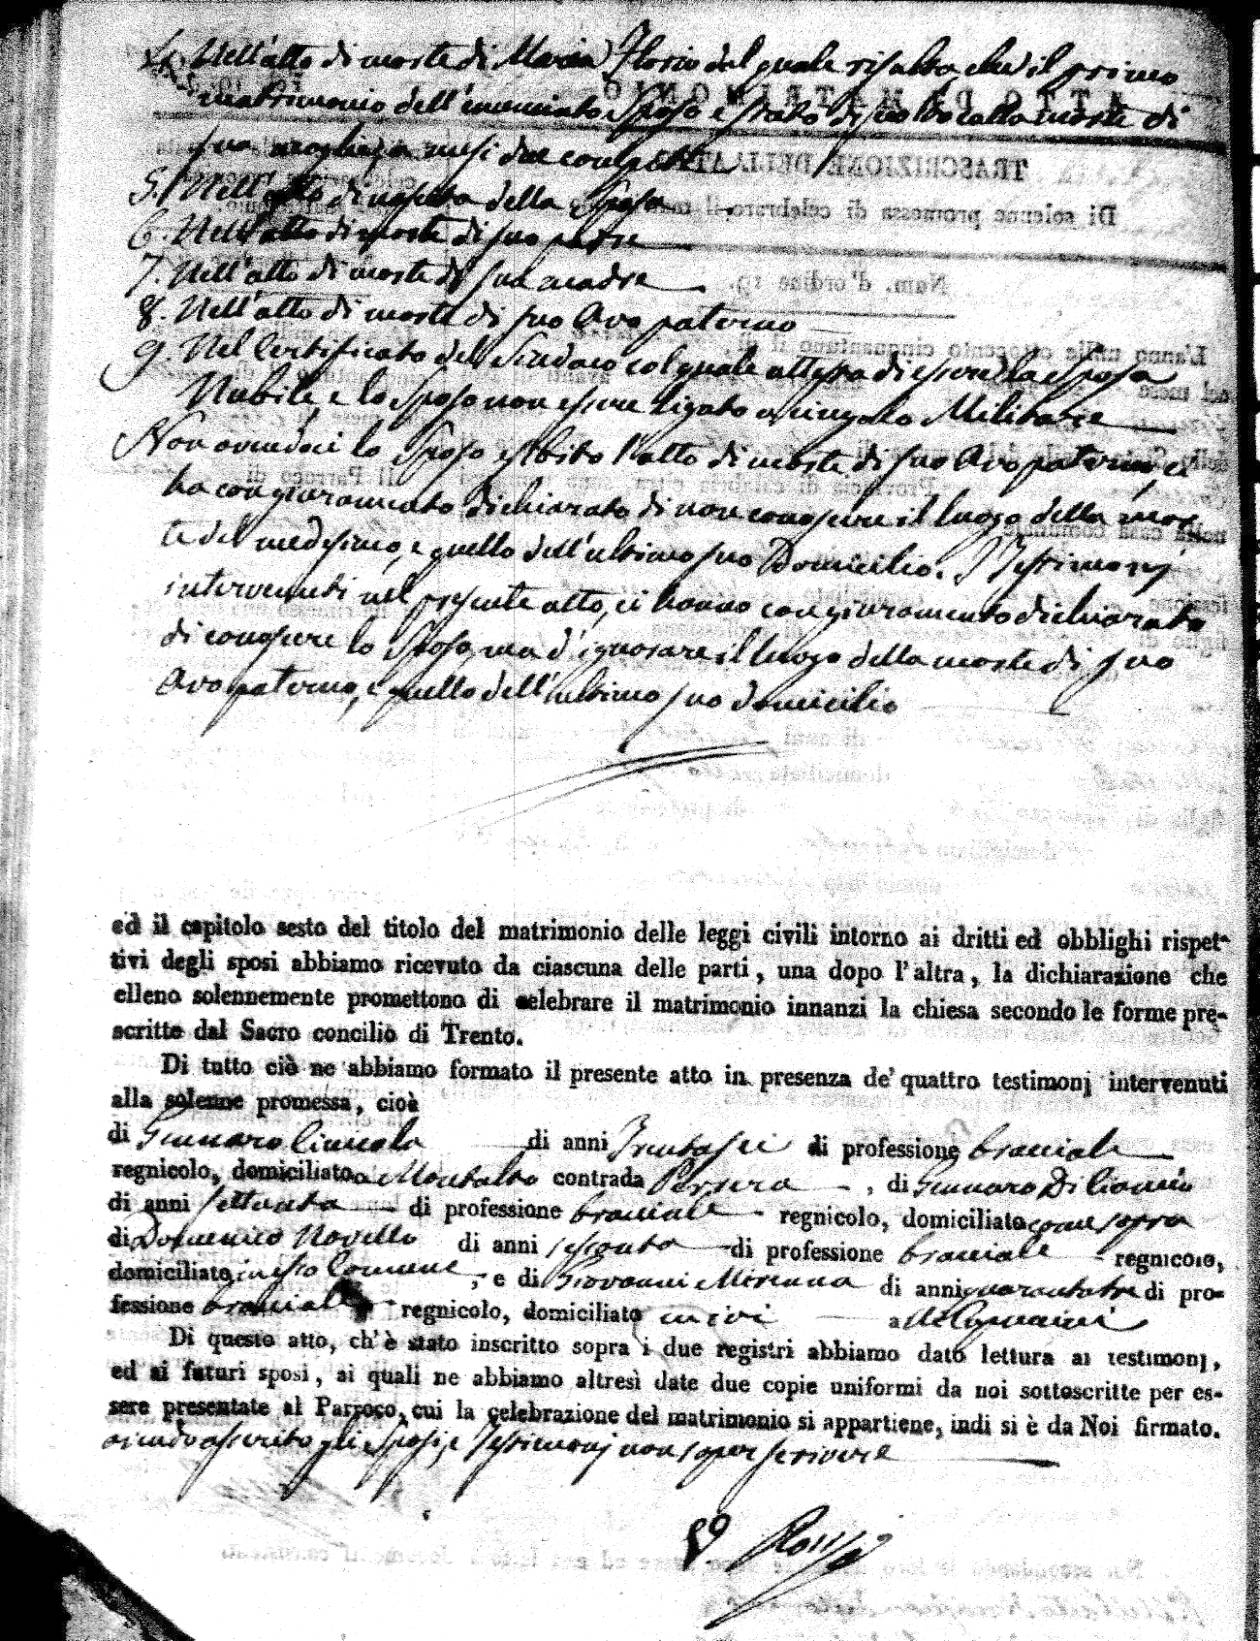 4. Nell'atto di morte di Maria Florio dal quale risulta che il primo
matrimonio dell'enunciato Sposo è stato disciolto colla morte di
sua moglie mesi due
5. Nell'atto di nascita della Sposa
6. Nell'atto di morte di suo padre
7. Nell'atto di morte di sua madre
8. Nell'atto di morte di suo Avo paterno
9. Nel Certificato del Sindaco col quale attesta di essere la Sposa
Nubile, e lo Sposo non essere ligato a cingolo Militare
Non avendoci lo Sposo esibito l'atto di morte di suo Avo paterno, ci
ha con giuramento dichiarato di non conoscere il luogo della mor
te del medesimo, e quello dell'ultimo suo Domicilio. I Testimonj
intervenuti nel presente atto, ci hanno con giuramento dichiarato
di conoscere lo Sposo, ma d'ignorare il luogo della morte di suo
Avo paterno, e quello dell'ultimo suo domicilio
ed il capitolo sesto del titolo del matrimonio delle leggi civili intorno ai dritti ed obblighi rispet-
tivi degli sposi abbiamo ricevuto da ciascuna delle parti, una dopo l'altra, la dichiarazione che
elleno solennemente promettono di celebrare il matrimonio innanzi la chiesa secondo le forme pre-
scritte dal Sacro concilio di Trento.
Di tutto ciò ne abbiamo formato il presente atto in presenza de' quattro testimonj intervenuti
alla solenne promessa, cioè
di Gennaro Cianelo di anni Trentasei di professione bracciale
regnicolo, domiciliato a Montalto contrada , di Gennaro Di Cianni
di anni settanta di professione bracciale regnicolo, domiciliato come sopra
di Domenico Novello di anni sessanta di professione bracciale regnicolo,
domiciliato in esso Comune, e di Giovanni Miranna di anni quarantatre di pro-
fessione bracciale regnicolo, domiciliato ivi a
Di questo atto, ch'è stato inscritto sopra i due registri abbiamo dato lettura ai testimonj,
ed ai futuri sposi, ai quali ne abbiamo altresì date due copie uniformi da noi sottoscritte per es-
sere presentate al Parroco, cui la celebrazione del matrimonio si appartiene, indi si è da Noi firmato.
avendo asserito gli Sposi, e Testimonj non saper scrivere
Rossi